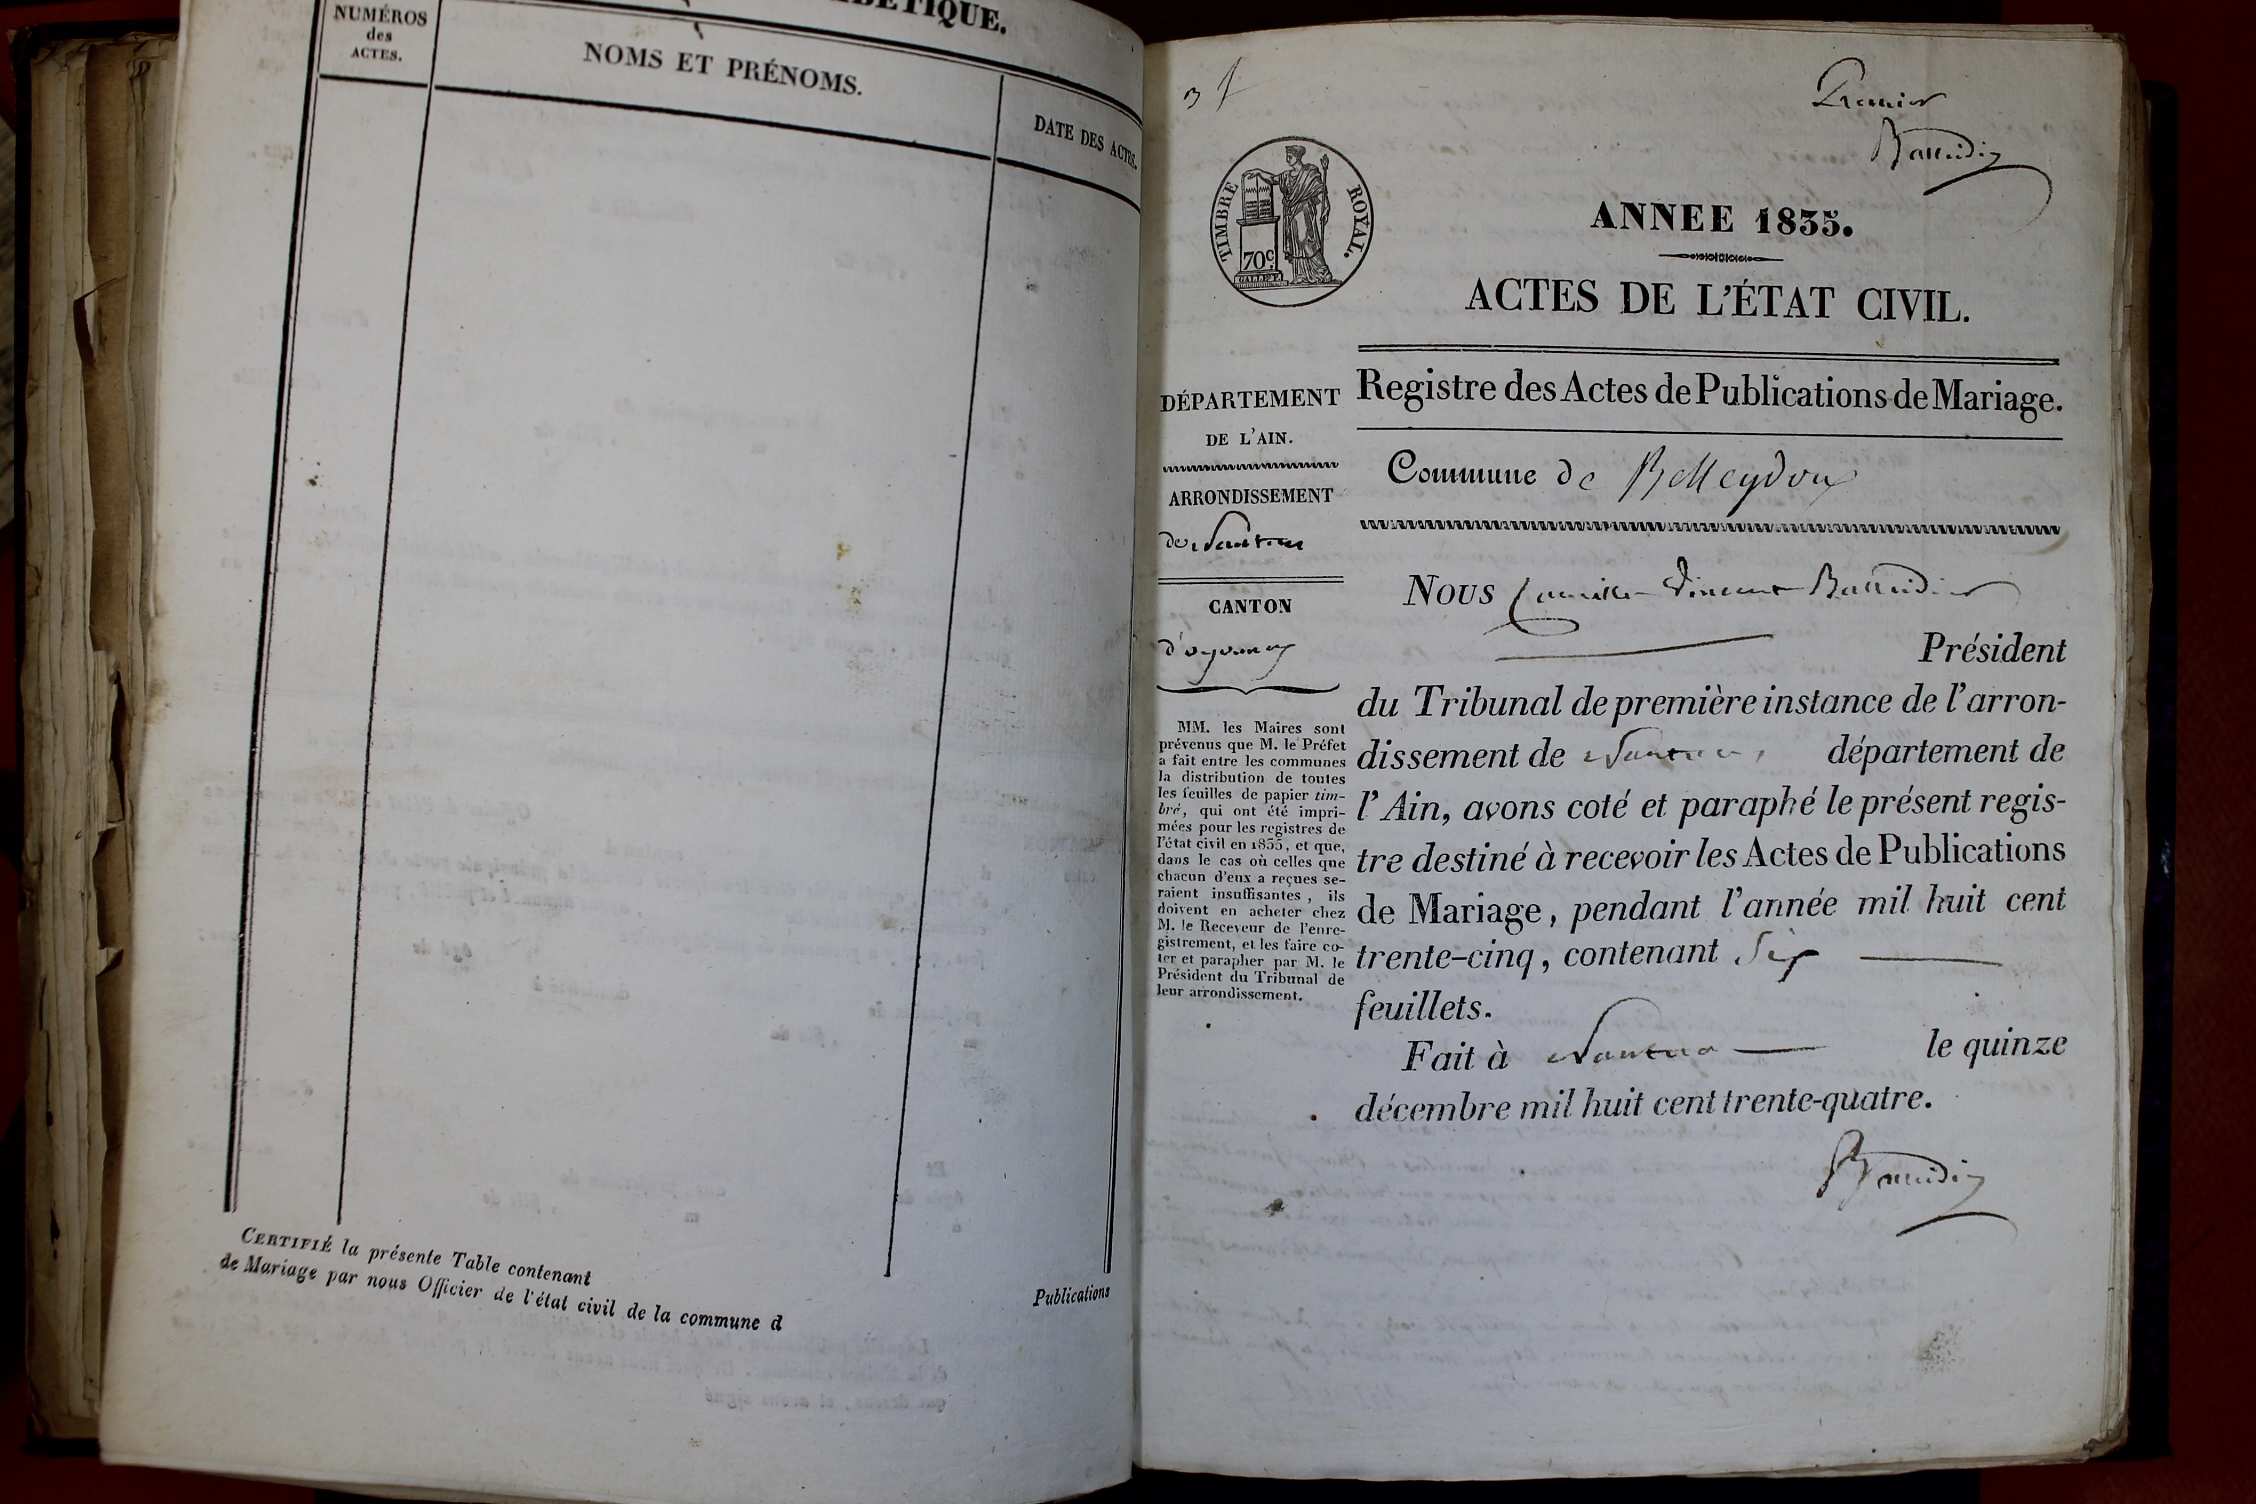 NUMÉROS
des
ACTES.
NOMS ET PRÉNOMS.
DATE DES ACTES.
CERTIFIÉ la présente Table contenant
Publications
de Mariage par nous Officier de l'état civil de la commune d
Premier
TIMBRE ROYAL.
70c.
ANNEE 1835.
ACTES DE L'ÉTAT CIVIL.
DÉPARTEMENT
DE L'AIN.
ARRONDISSEMENT
de Nantua
CANTON
d'oyonnax
MM. les Maires sont
prévenus que M. le Préfet
a fait entre les communes
la distribution de toutes
les feuilles de papier tim-
bré, qui ont été impri-
mées pour les registres de
l'état civil en 1835, et que,
dans le cas où celles que
chacun d'eux a reçues se-
raient insuffisantes, ils
doivent en acheter chez
M. le Receveur de l'enre-
gistrement, et les faire co-
ter et parapher par M. le
Président du Tribunal de
leur arrondissement.
Registre des Actes de Publications de Mariage.
Commune de Belleydoux
Nous Camille Vincent
Président
du Tribunal de première instance de l'arron-
dissement de Nantua, département de
l'Ain, avons coté et paraphé le présent regis-
tre destiné à recevoir les Actes de Publications
de Mariage, pendant l'année mil huit cent
trente-cinq, contenant Six
feuillets.
Fait à Nantua le quinze
décembre mil huit cent trente-quatre.